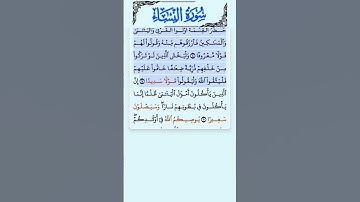 سُورَةُ النِّسَاءِ
حَضَرَ الْقِسْمَةَ أُولُوا الْقُرْبَىٰ وَالْيَتَامَىٰ
وَالْمَسَاكِينُ فَارْزُقُوهُم مِّنْهُ وَقُولُوا لَهُمْ
قَوْلًا مَّعْرُوفًا ۝ وَلْيَخْشَ الَّذِينَ لَوْ تَرَكُوا
مِنْ خَلْفِهِمْ ذُرِّيَّةً ضِعَافًا خَافُوا عَلَيْهِمْ
فَلْيَتَّقُوا اللَّهَ وَلْيَقُولُوا قَوْلًا سَدِيدًا ۝ إِنَّ
الَّذِينَ يَأْكُلُونَ أَمْوَالَ الْيَتَامَىٰ ظُلْمًا إِنَّمَا
يَأْكُلُونَ فِي بُطُونِهِمْ نَارًا وَسَيَصْلَوْنَ
سَعِيرًا ۝ يُوصِيكُمُ اللَّهُ فِي أَوْلَادِكُمْ